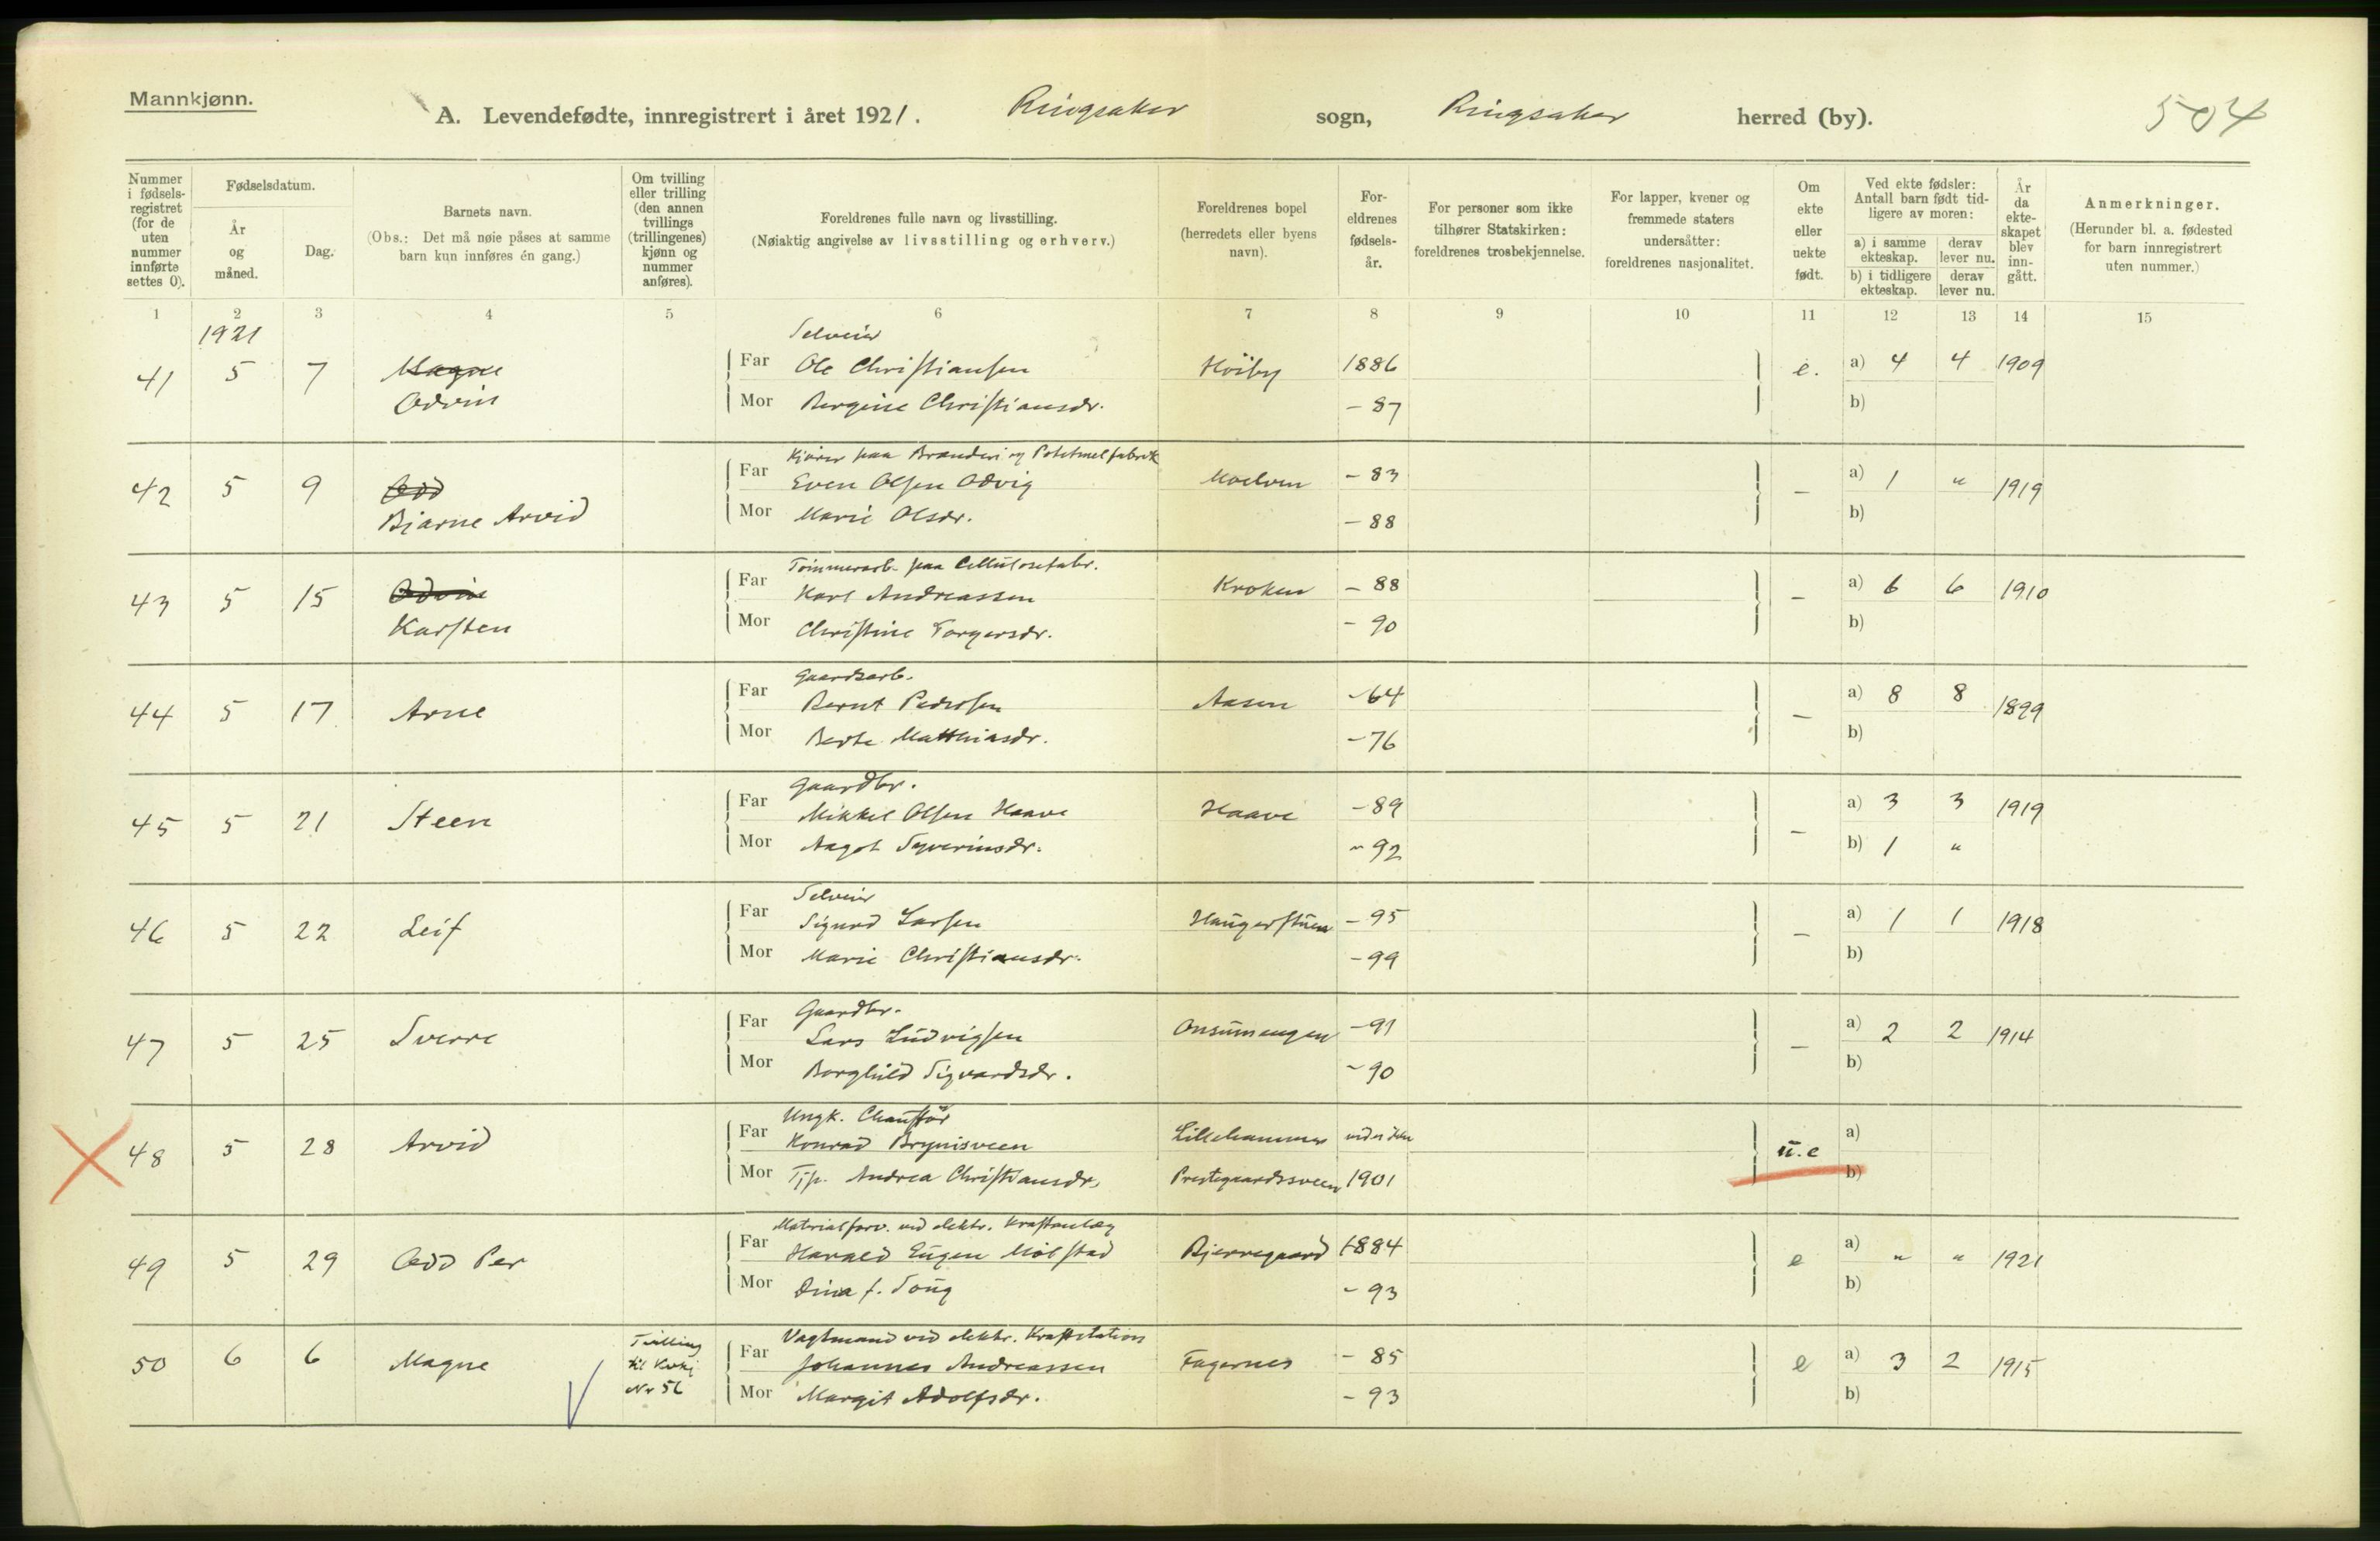 Mannkjønn.
A. Levendefødte, innregistrert i året 1921. Ringsaker sogn, Ringsaker herred (by). 504
Nummer i fødselsregistret (for de uten nummer innførte settes 0).
Fødselsdatum.
År og måned.
Dag.
Barnets navn.
(Obs.: Det må nøie påses at samme barn kun innføres én gang.)
Om tvilling eller trilling (den annen tvillings (trillingenes) kjønn og nummer anføres).
Foreldrenes fulle navn og livsstilling.
(Nøiaktig angivelse av livsstilling og erhverv.)
Foreldrenes bopel (herredets eller byens navn).
Foreldrenes fødselsår.
For personer som ikke tilhører Statskirken: foreldrenes trosbekjennelse.
For lapper, kvener og fremmede staters undersåtter: foreldrenes nasjonalitet.
Om ekte eller uekte født.
Ved ekte fødsler: Antall barn født tidligere av moren:
a) i samme ekteskap. derav lever nu.
b) i tidligere ekteskap. derav lever nu.
År da ekteskapet blev inngått.
Anmerkninger.
(Herunder bl. a. fødested for barn innregistrert uten nummer.)
1 2 3 4 5 6 7 8 9 10 11 12 13 14 15
1921
Selveier
41 5 7 Magne Far Ole Christiansen Höiby 1886 e. a) 4 4 1909
Odvin Mor Bergine Christiansdr. – 87 b)
Kjörer paa Brænderi og Potetmelfabrik
42 5 9 Odd Far Even Olsen Odvig Moelven – 83 – a) 1 " 1919
Bjarne Arvid Mor Marie Olsdr. – 88 b)
Tömmerarb. paa Cellulosefabr.
43 5 15 Odvin Far Karl Andreassen Kroken – 88 – a) 6 6 1910
Karsten Mor Christine Torgersdr. – 90 b)
Gaardsarb.
44 5 17 Arne Far Bernt Pedersen Aasen – 64 – a) 8 8 1899
Mor Berte Matthiasdr. – 76 b)
Gaardbr.
45 5 21 Steen Far Mikkel Olsen Haave Haave – 89 – a) 3 3 1919
Mor Aagot Syverinsdr. – 92 b) 1 "
Selveier
46 5 22 Leif Far Sigurd Larsen Haugerstuen – 95 – a) 1 1 1918
Mor Marie Christiansdr. – 99 b)
Gaardbr.
47 5 25 Sverre Far Lars Ludvigsen Onsumengen – 91 – a) 2 2 1914
Mor Borghild Sigvardsdr. – 90 b)
Ungk. Chauffør
48 5 28 Arvid Far Konrad Brynisveen Lillehammer vides ikke u.e a)
Mor Tjp. Andrea Christiansdr. Prestegaardssveen 1901 b)
Materialforv. ved elektr. Kraftanlæg
49 5 29 Odd Per Far Harald Eugen Molstad Bjerregaard 1884 e a) " " 1921
Mor Dina f. Soug – 93 b)
Vagtmand ved elektr. Kraftstation
50 6 6 Magne Tvilling til Kvkj Nr 56 Far Johannes Andreassen Fagernes – 85 e a) 3 2 1915
Mor Margit Adolfsdr. – 93 b)